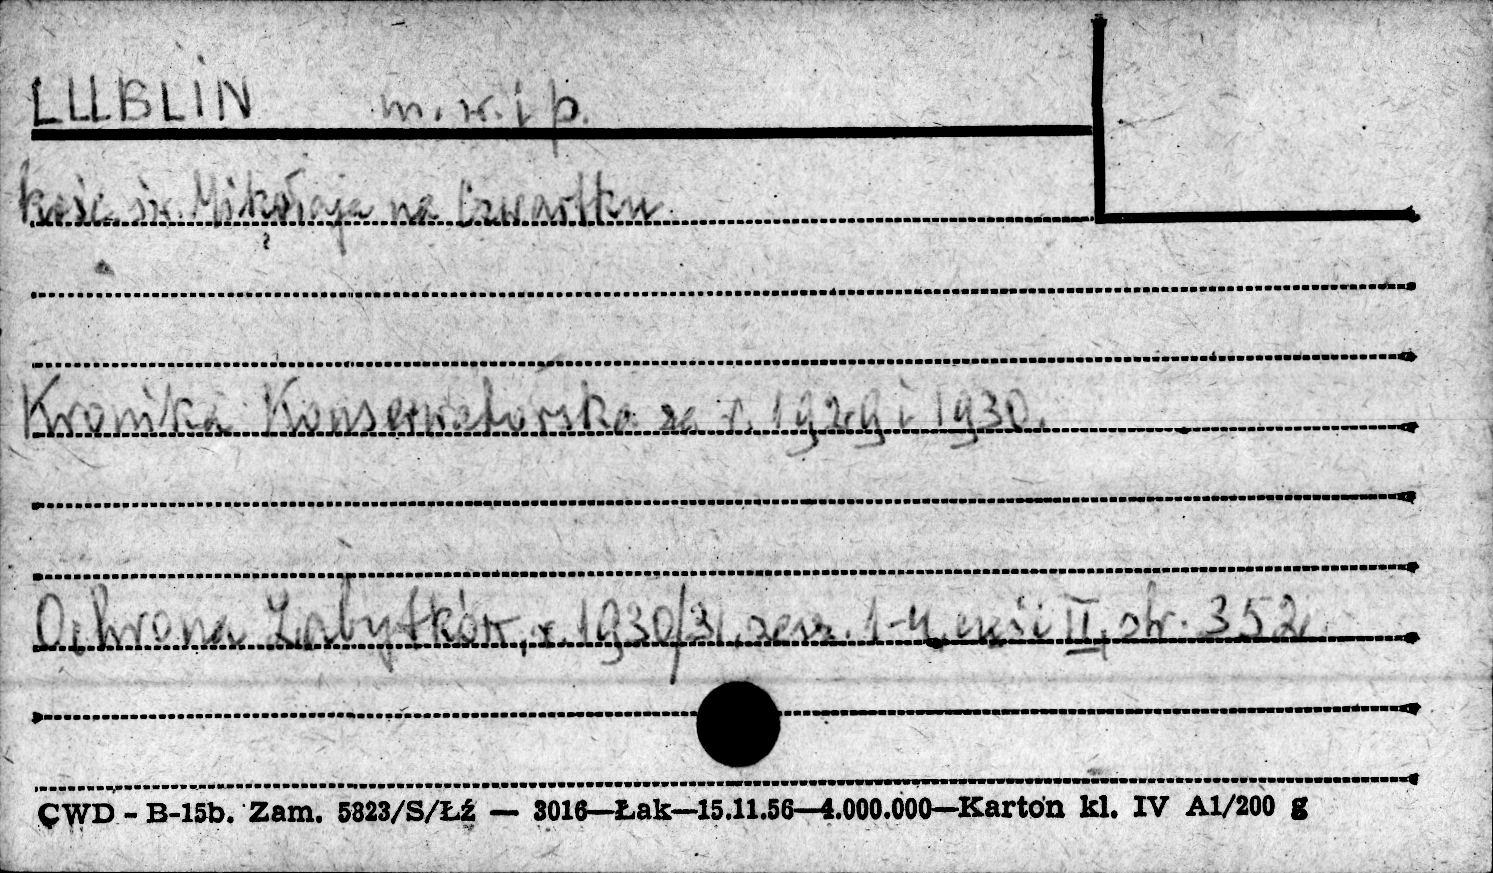 LUBLIN m. w. i p.
kośc. św. Mikołaja na Czwartku
Kronika Konserwatorska za r. 1929 i 1930.
Ochrona Zabytków, r. 1930/31. zesz. 1-4, część II, str. 352.
CWD - B-15b. Zam. 5823/S/Łź — 3016—Łak—15.11.56—4.000.000—Karton kl. IV A1/200 g